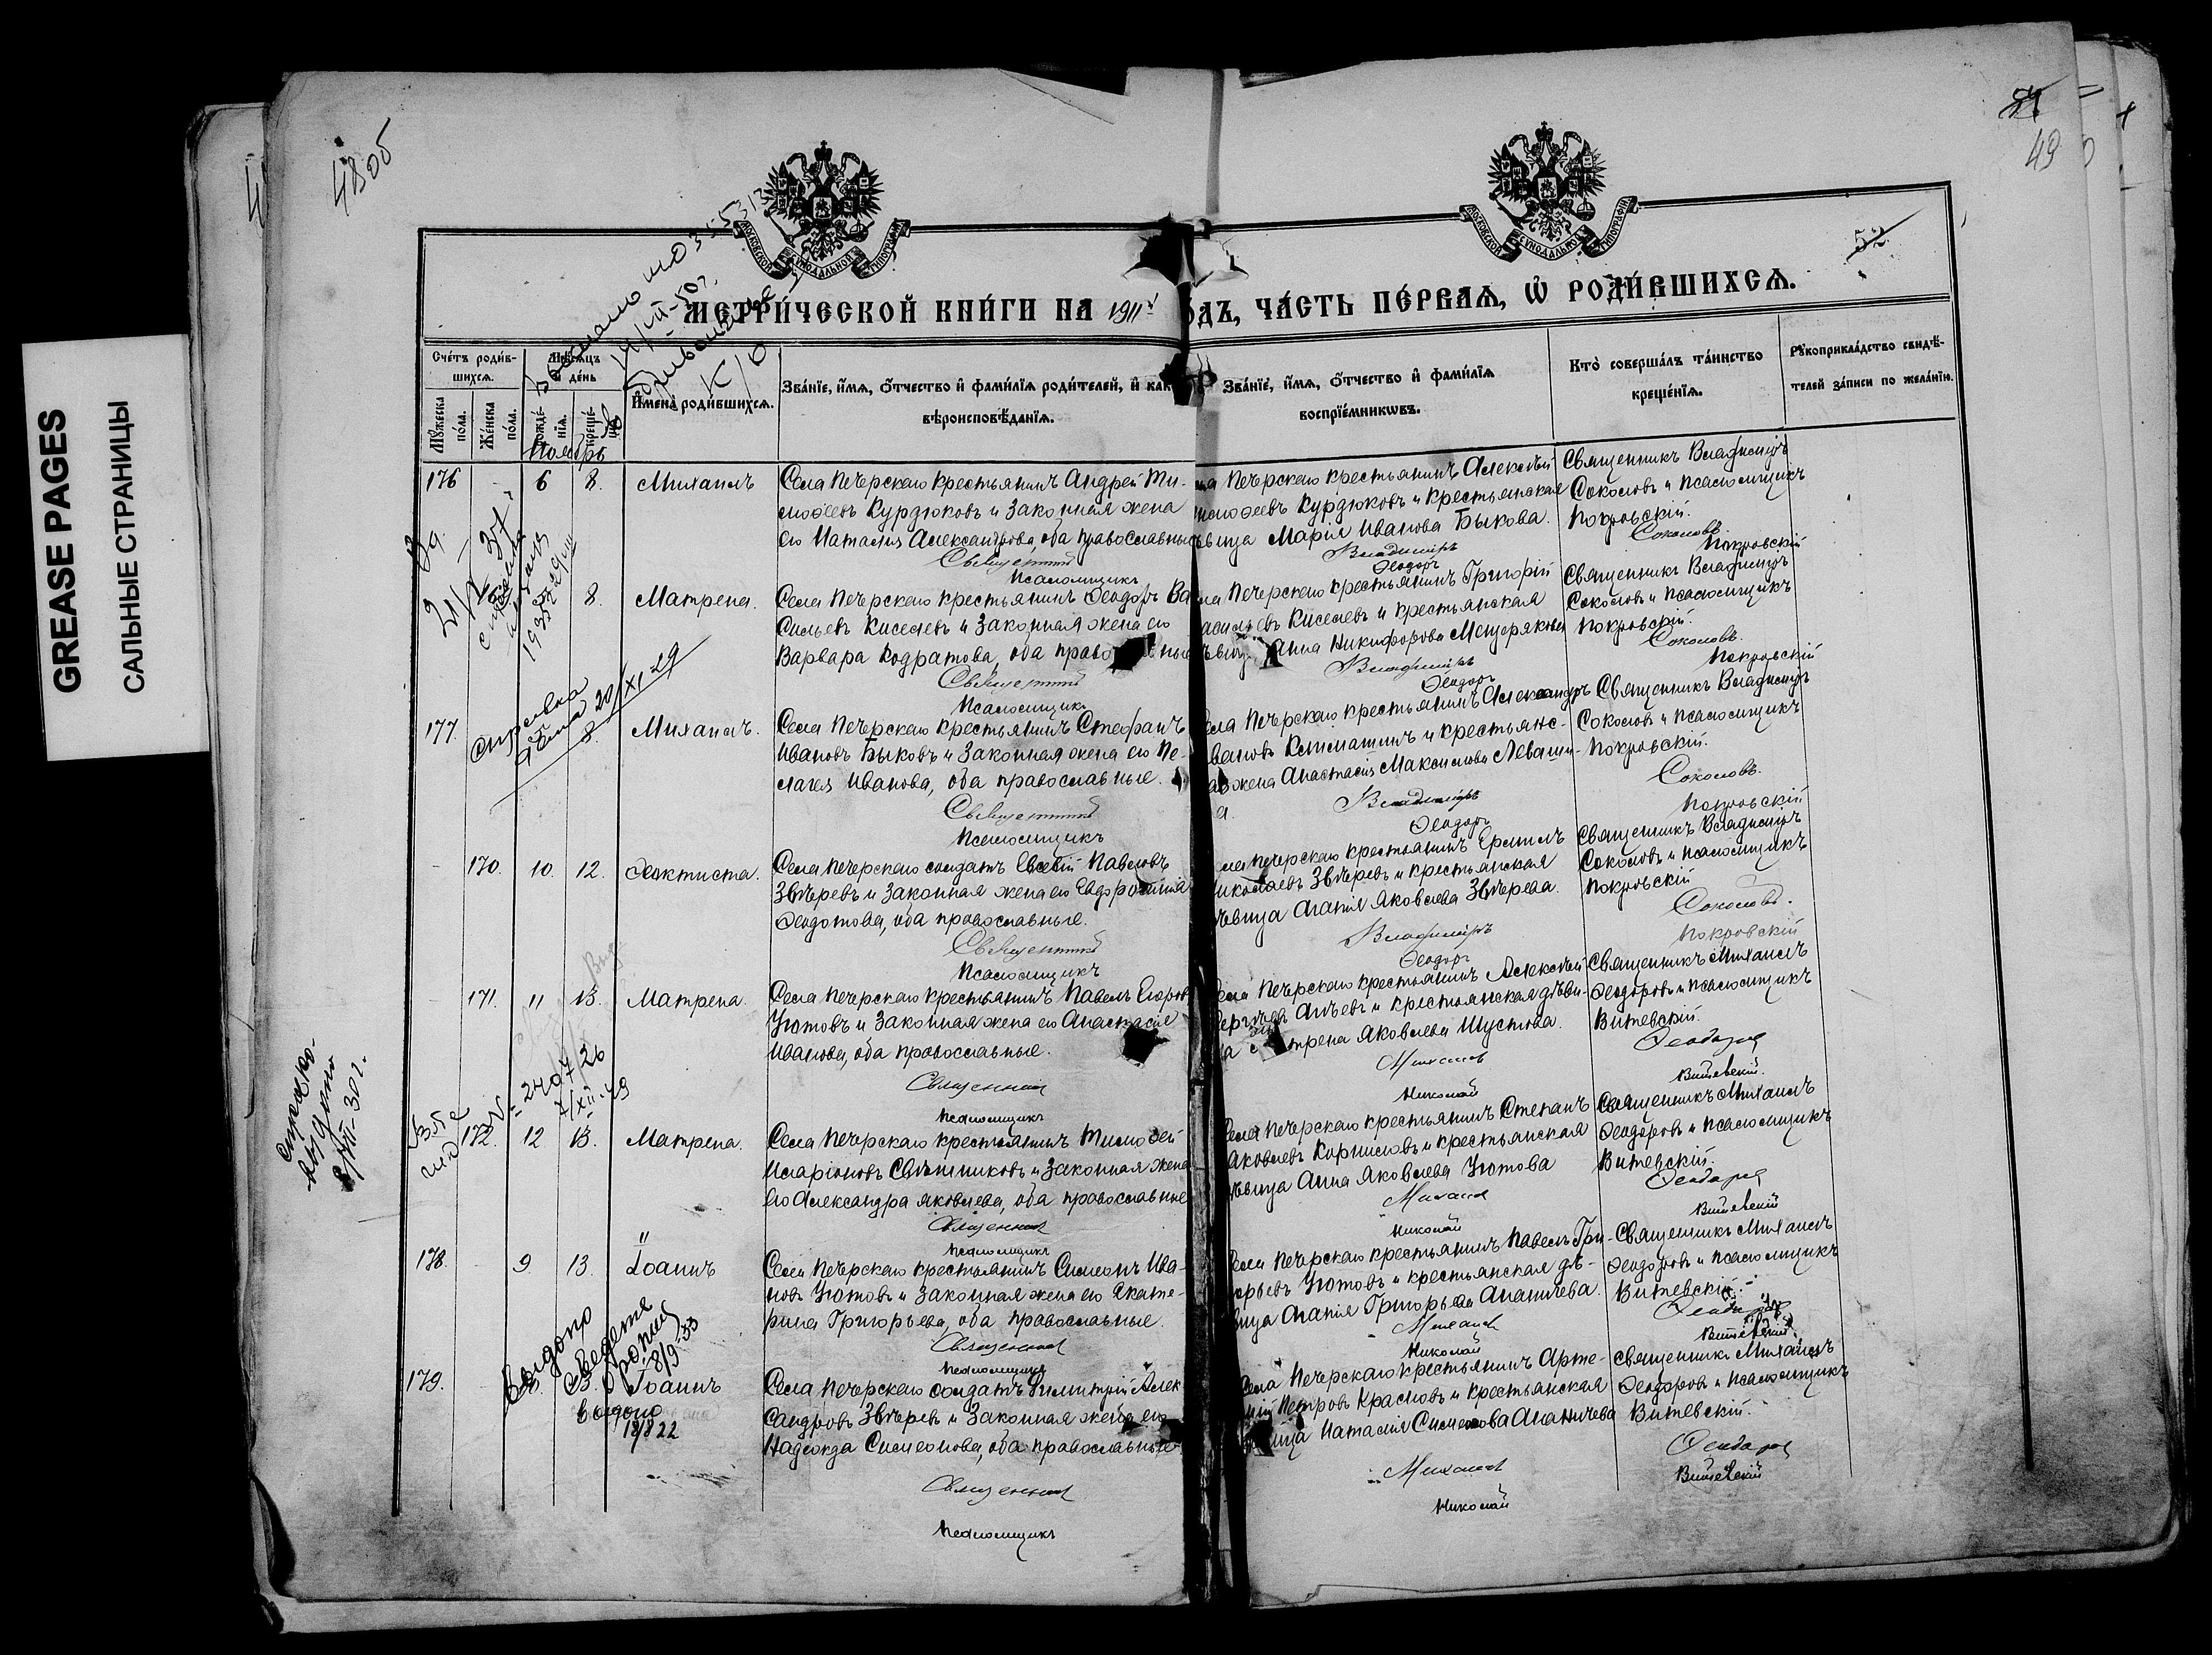 GREASE PAGES
САЛЬНЫЕ СТРАНИЦЫ
48об
49
52
МОСКОВСКОЙ СУНОДАЛЬНОЙ ТИПОГРАФІИ
МОСКОВСКОЙ СУНОДАЛЬНОЙ ТИПОГРАФІИ
МЕТРИ́ЧЕСКОЙ КНИ́ГИ НА 1911 ОДЪ, ЧА́СТЬ ПЕ́РВАѦ, Ѽ РОДИ́ВШИХСѦ.
Сче́тъ роди́в-
шихсѧ.
Мѣ́сѧцъ
и де́нь
Мꙋ́жеска
по́ла.
Же́нска
по́ла.
рожде́-
нїѧ.
креще́-
нїѧ.
И҆мена̀ роди́вшихсѧ.
Зва́нїе, и҆́мѧ, ѻ҆́тчество и҆ фами́лїѧ роди́телей, и҆ как
вѣроисповѣ́данїѧ.
Зва́нїе, и҆́мѧ, ѻ҆́тчество и҆ фами́лїѧ
воспрїе́мникѡвъ.
Кто̀ соверша́лъ та́инство
креще́нїѧ.
Рꙋкоприкла́дство свидѣ́-
телей за́писи по жела́нїю.
Ноябрь
176 - 6 8. Михаилъ
Села Печерскаго крестьянинъ Андрей Ти-
мофеевъ Курдюковъ и законная жена
его Наталія Александрова, оба православные
Священникъ
Псаломщикъ
Печерскаго крестьянинъ Алексѣй
Курдюковъ и крестьянская
вица Марія Иванова Быкова.
Владиміръ
Ѳеодоръ
Священникъ Владиміръ
Соколовъ и псаломщикъ
Покровскій.
Соколовъ.
Покровскій
8. Матрена.
Села Печерскаго крестьянинъ Ѳеодоръ Ва
сильевъ Киселевъ и законная жена его
Варвара Кодратова, оба право ные
Священникъ
Псаломщикъ
Печерскаго крестьянинъ Григорій
асильевъ Киселевъ и крестьянская
Анна Никифорова Мещерякова
Владиміръ
Ѳеодоръ
Священникъ Владиміръ
Соколовъ и псаломщикъ
Покровскій.
Соколовъ.
Покровскій
177. 8. Михаилъ.
справка
20/XI 29
Села Печерскаго крестьянинъ Стефанъ
Ивановъ Быковъ и законная жена его Пе-
лагея Иванова, оба православные.
Священникъ
Псаломщикъ
ела Печерскаго крестьянинъ Александръ
вановъ и крестьянс-
жена Анастасія Максимова Леваши-
а.
Владиміръ
Ѳеодоръ
Священникъ Владиміръ
Соколовъ и псаломщикъ
Покровскій.
Соколовъ.
Покровскій
- 170. 10. 12. Ѳеоктиста.
Села Печерскаго солдатъ Евсевій Павловъ
Звѣревъ и законная жена его Евдокимія
Ѳеодотова, оба православные.
Священникъ
Псаломщикъ
Печерскаго крестьянинъ Ермилъ
иколаевъ Звѣревъ и крестьянская
ѣвица Агапія Яковлева Звѣрева.
Владиміръ
Ѳеодоръ
Священникъ Владиміръ
Соколовъ и псаломщикъ
Покровскій
Соколовъ.
Покровскій
- 171. 11 13. Матрена.
Села Печерскаго крестьянинъ Павелъ Егоров
Уютовъ и законная жена его Анастасія
Иванова, оба православные.
Священникъ
Псаломщикъ
Печерскаго крестьянинъ Алексѣй
и крестьянская дѣви-
трена Яковлева Шустова.
Михаилъ
Николай
Священникъ Михаилъ
Ѳеодоровъ и псаломщикъ
Витевскій.
Ѳеодоровъ
Витевскій.
172. 12 13. Матрена.
Села Печерскаго крестьянинъ Тимофей
Иларіоновъ Свѣшниковъ и законная жена
его Александра Яковлева, оба православные
Священникъ
Псаломщикъ
Села Печерскаго крестьянинъ Степанъ
Яковлевъ Корниловъ и крестьянская
ѣвица Анна Яковлева Уютова
Михаилъ
Николай
Священникъ Михаилъ
Ѳеодоровъ и псаломщикъ
Витевскій.
Ѳеодоровъ
Витевскій
178. - 9 13. Іоаннъ
Села Печерскаго крестьянинъ Симеонъ Ива-
новъ Уютовъ и законная жена его Екате-
рина Григорьева, оба православные.
Священникъ
Псаломщикъ
Села Печерскаго крестьянинъ Павелъ Гри-
орьевъ Уютовъ и крестьянская дѣ-
вица Агапія Григорьева Ананичева.
Михаилъ
Николай
Священникъ Михаилъ
Ѳеодоровъ и псаломщикъ
Витевскій.
Ѳеодоровъ
Витевскій
179. Іоаннъ
выдано
18/8 22
Села Печерскаго солдатъ Димитрій Алек
сандровъ Звѣревъ и законная жена его
Надежда Симеонова, оба православные
Священникъ
Псаломщикъ
Села Печерскаго крестьянинъ Арте-
мій Петровъ Красновъ и крестьянская
ица Наталія Симеонова Ананичева
Михаилъ
Николай
Священникъ Михаилъ
Ѳеодоровъ и псаломщикъ
Витевскій.
Ѳеодоровъ
Витевскій